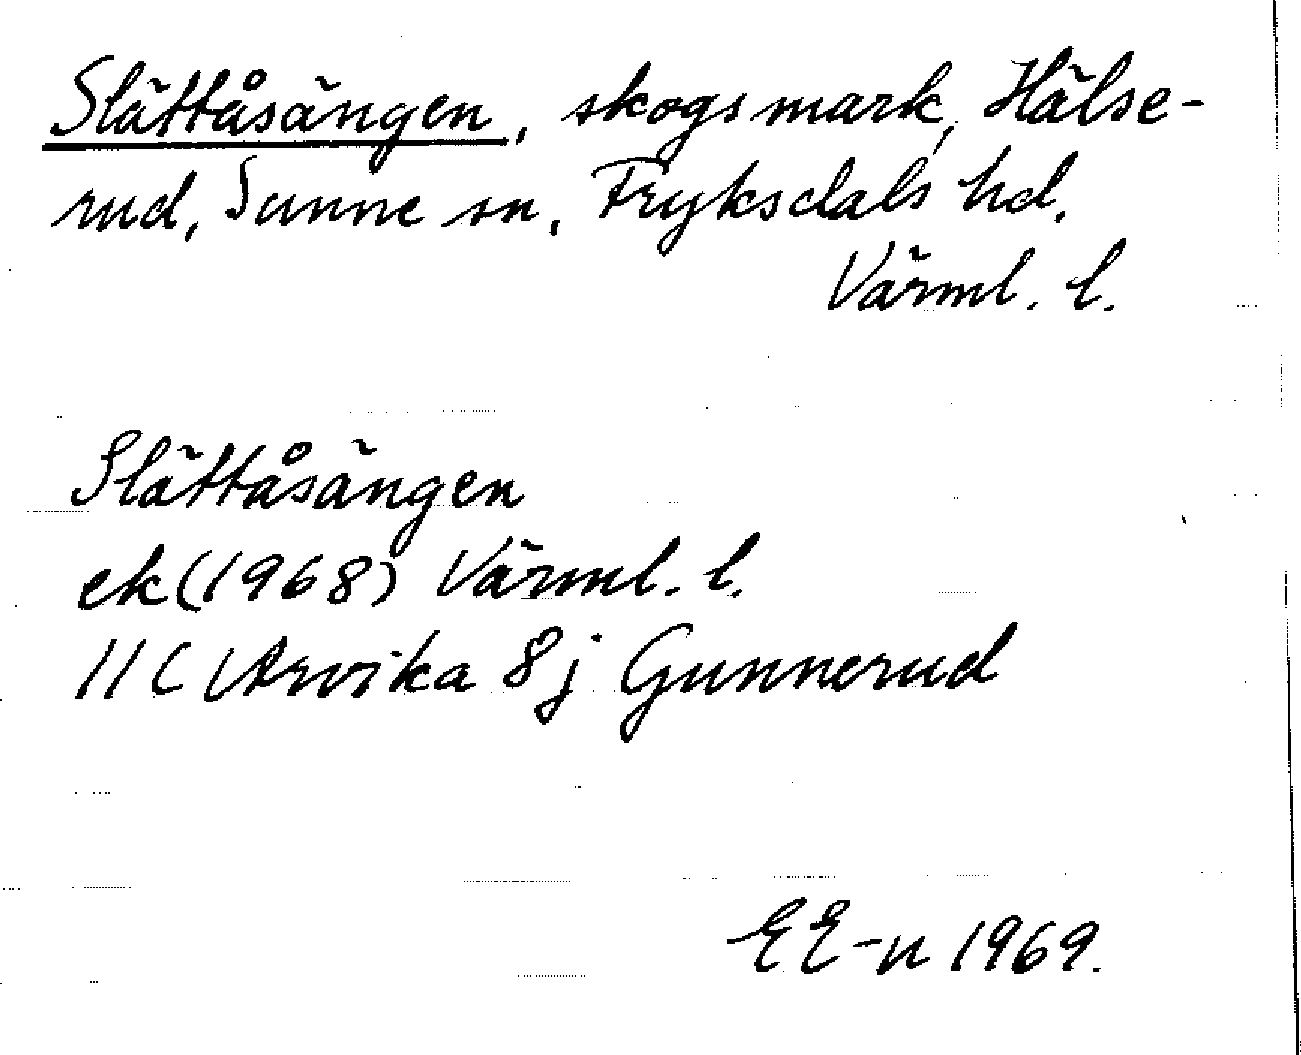 Slättåsängen, skogsmark, Hälse-
rud, Sunne sn, Fryksdals hd,
Värml. l.
Slättåsängen
ek (1968) Värml. l.
11C Arvika 8j Gunnerud
EE-n 1969.